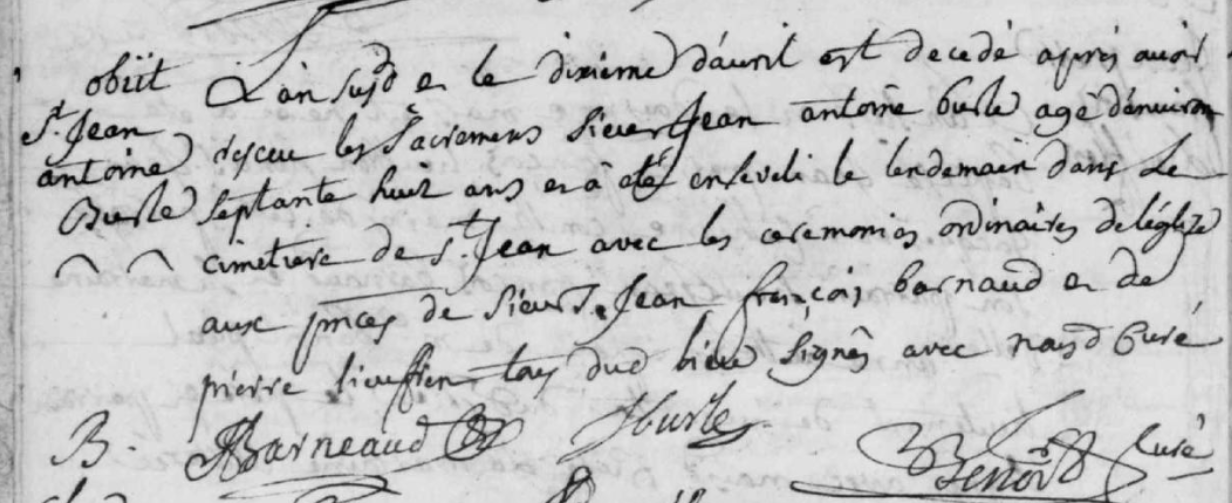 obiit
St. Jean
antoine
Burle
L'an susd et le dixieme d'auril est decedé aprés auoir
resceu les Sacremens Sieur Jean antoine burle agé d'enuiron
septante huit ans et à eté enseveli le lendemain dans le
cimetiere de st. Jean avec les ceremonies ordinaires de léglize
aux pnces de Sieurs Jean françois barnaud et de
pierre tous dud lieu signés avec nousd Curé
B. Barneaud Burle Benoit Curé